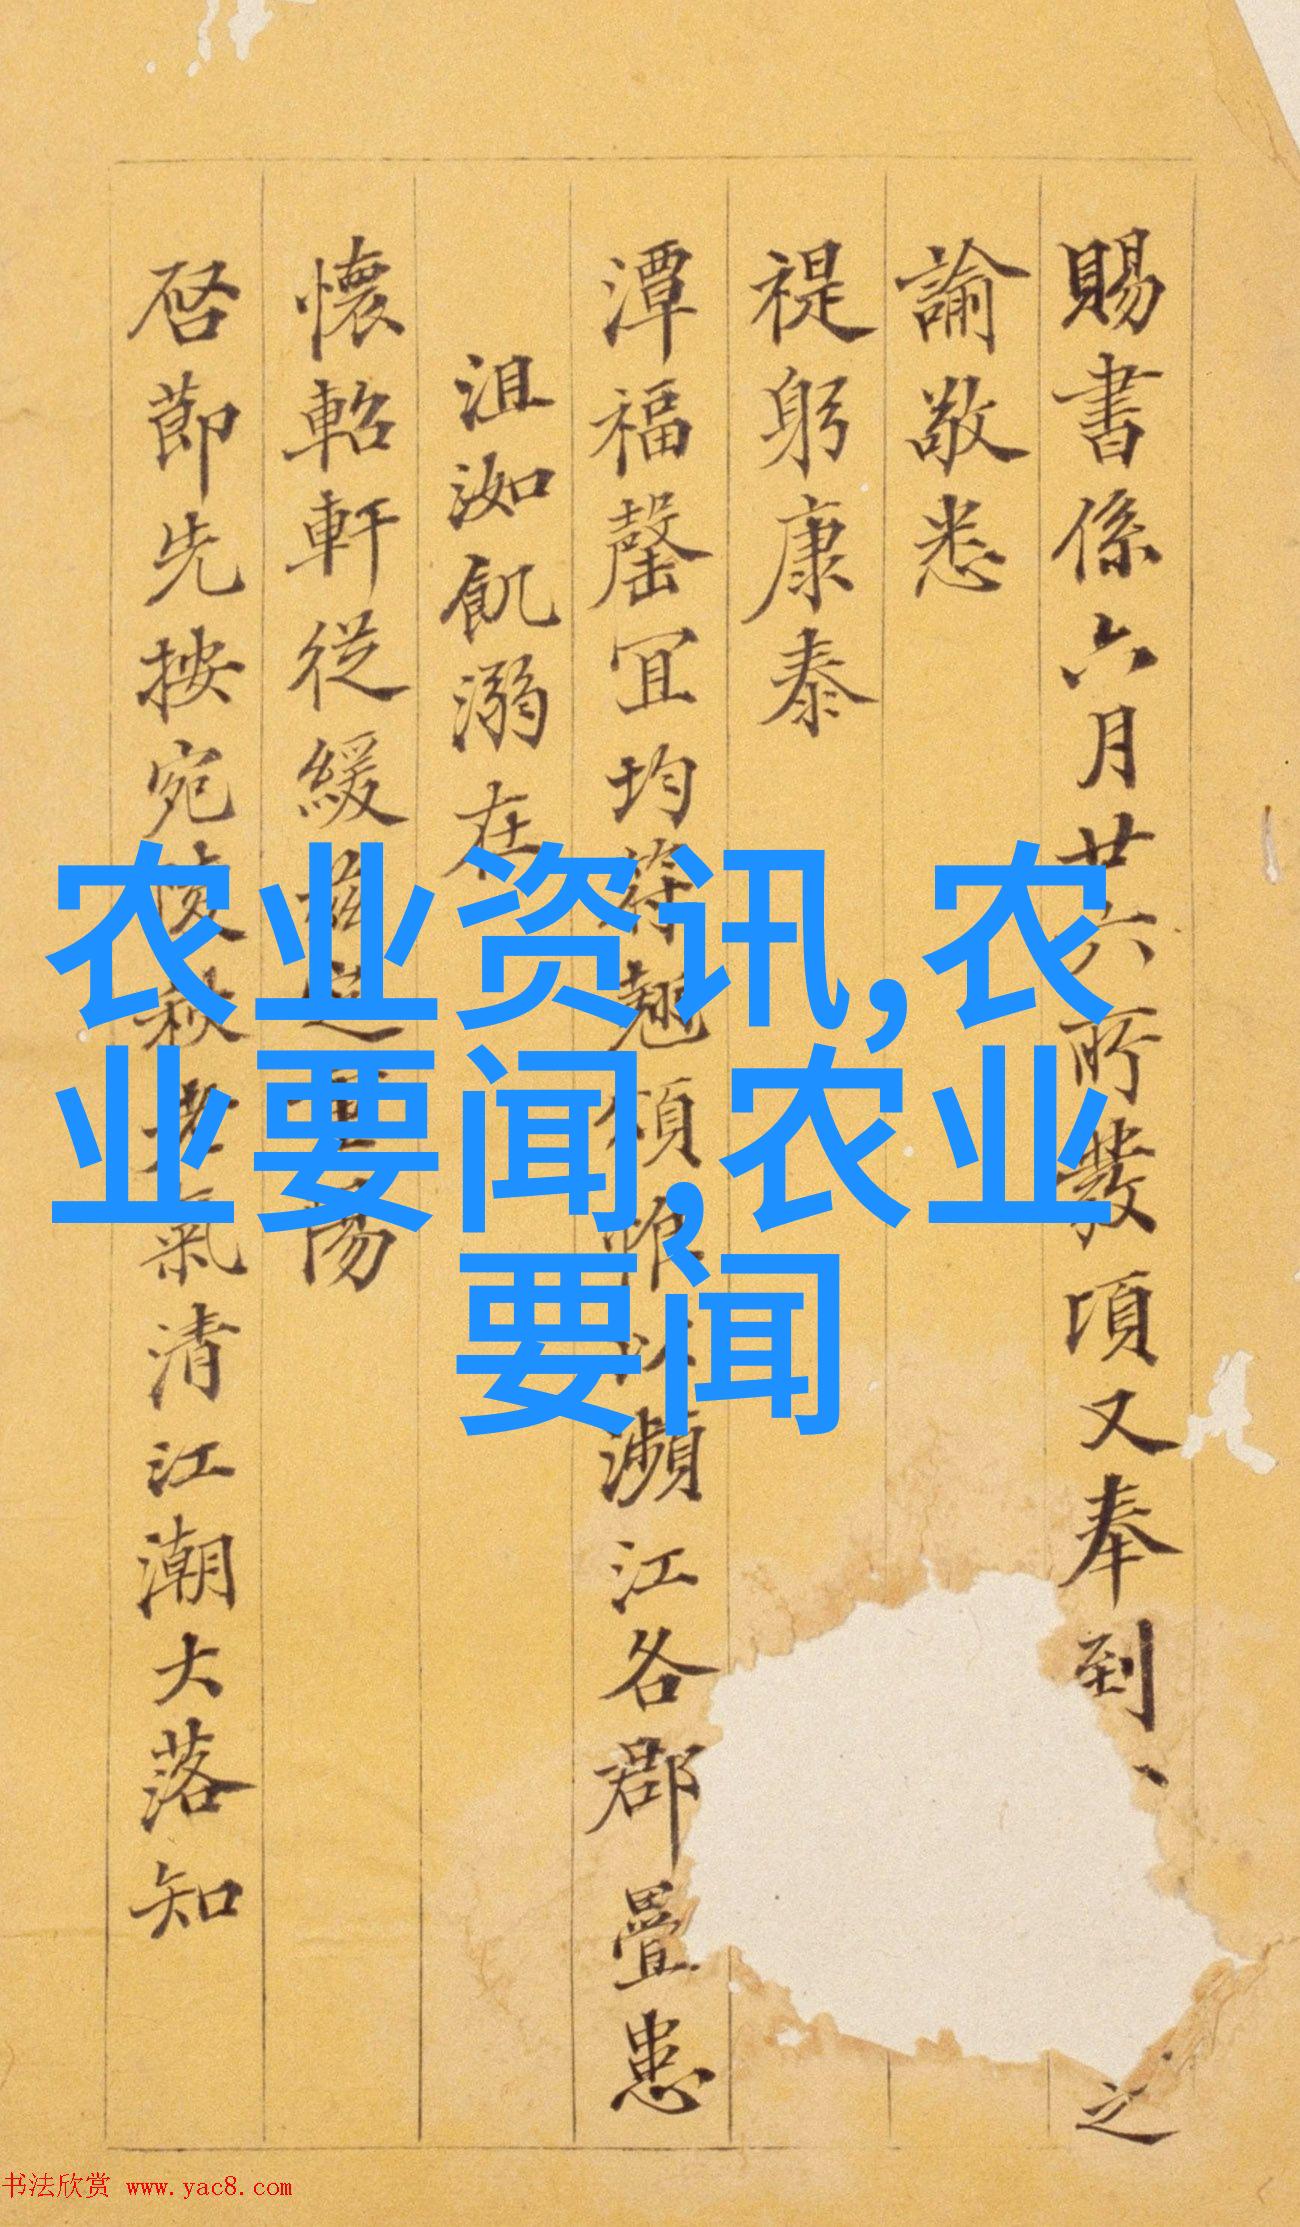 賜書係六月廿六所發項又奉到
之
諭敬悉
禔躬康泰
潭福罄宜均符翹頌惟以瀕江各郡疊患
沮洳飢溺在
懷軺軒從緩茲定重陽
啓節先按宛陵秋老氣清江潮大落知
农业资讯,农
业要闻,农业
要闻
书法欣赏 www.yac8.com